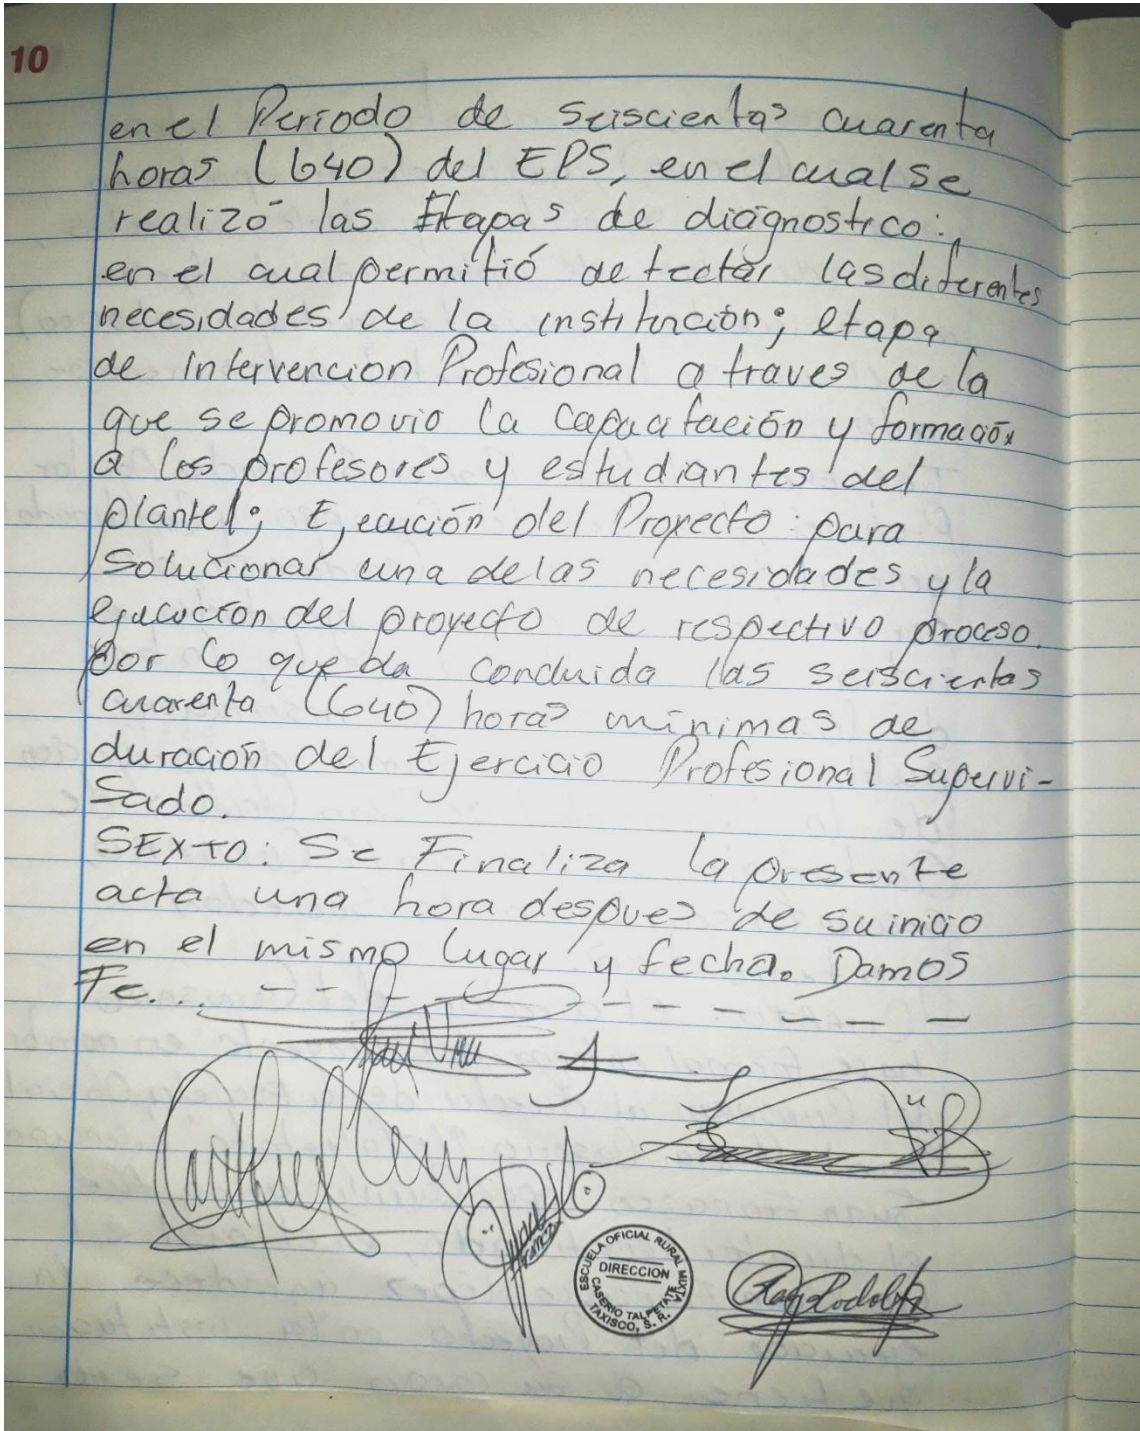 10
en el Periodo de seiscientas cuarenta
horas (640) del EPS, en el cual se
realizó las Etapas de diágnostico:,
en el cual permitió detectar las diferentes
necesidades de la institución; etapa
de Intervencion Profesional a traves de la
que se promovio la capacitación y formación
a los profesores y estudiantes del
plantel; Ejecución del Proyecto: para
Solucionar una de las necesidades y la
ejecución del proyecto de respectivo proceso.
por lo que da concluida las seiscientas
cuarenta (640) horas mínimas de
duración del Ejercicio Profesional Supervi-
sado.
SEXTO: Se Finaliza la presente
acta una hora despues de su inicio
en el mismo lugar y fecha. Damos
Fe... - - - - - - - - - - -
ESCUELA OFICIAL RURAL MIXTA
DIRECCION
CASERIO TALPETATE
TAXISCO, S. R.